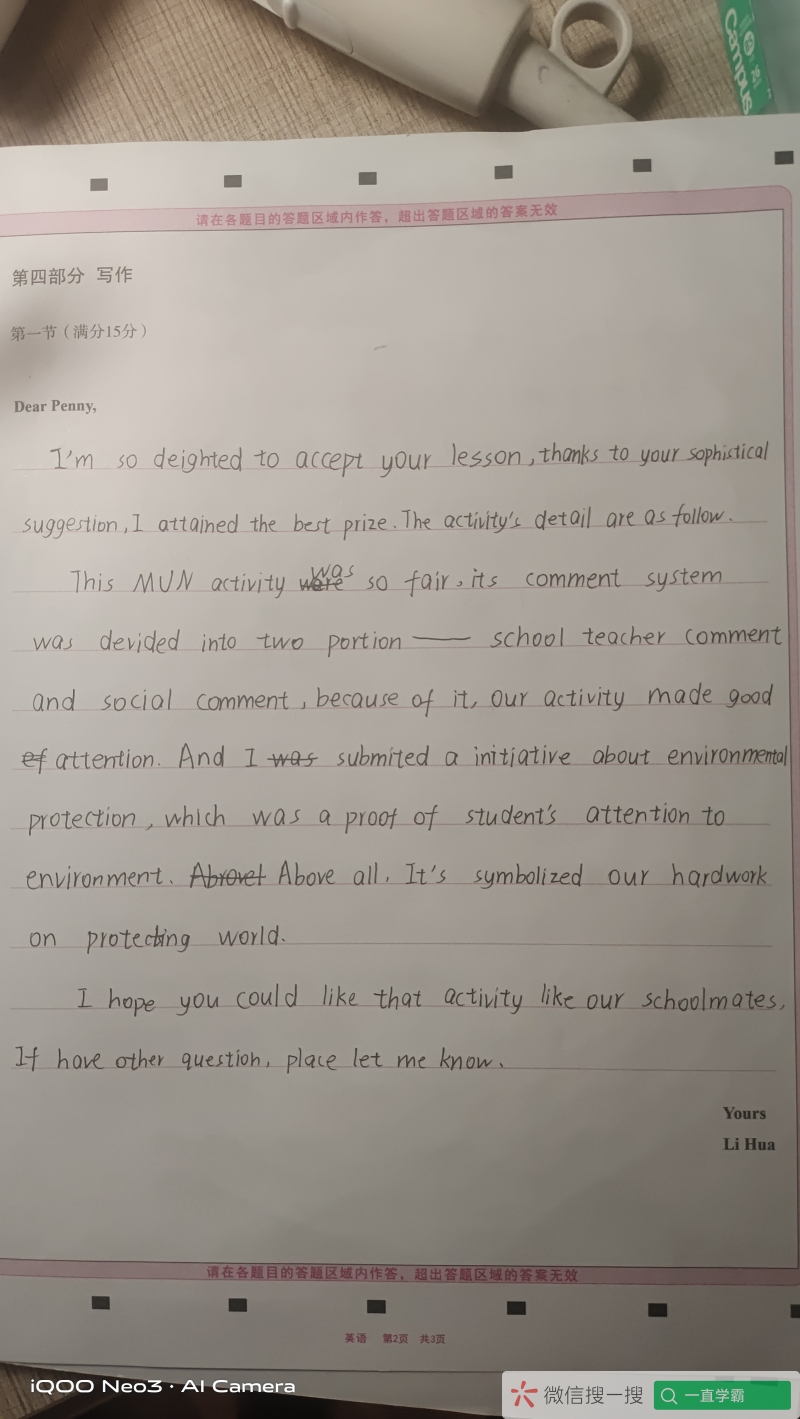 Campus
请在各题目的答题区域内作答，超出答题区域的答案无效
第四部分 写作
第一节（满分15分）
Dear Penny,
I'm so deighted to accept your lesson, thanks to your sophistical
suggestion, I attained the best prize. The activity's detail are as follow.
This MUN activity were was so fair, its comment system
was devided into two portion —— school teacher comment
and social comment, because of it, our activity made good
ef attention. And I was submited a initiative about environmental
protection, which was a proof of student's attention to
environment. Above all, It's symbolized our hardwork
on protecting world.
I hope you could like that activity like our schoolmates,
If have other question, place let me know.
Yours
Li Hua
请在各题目的答题区域内作答，超出答题区域的答案无效
英语 第2页 共3页
iQOO Neo3 · AI Camera
微信搜一搜 一直学霸